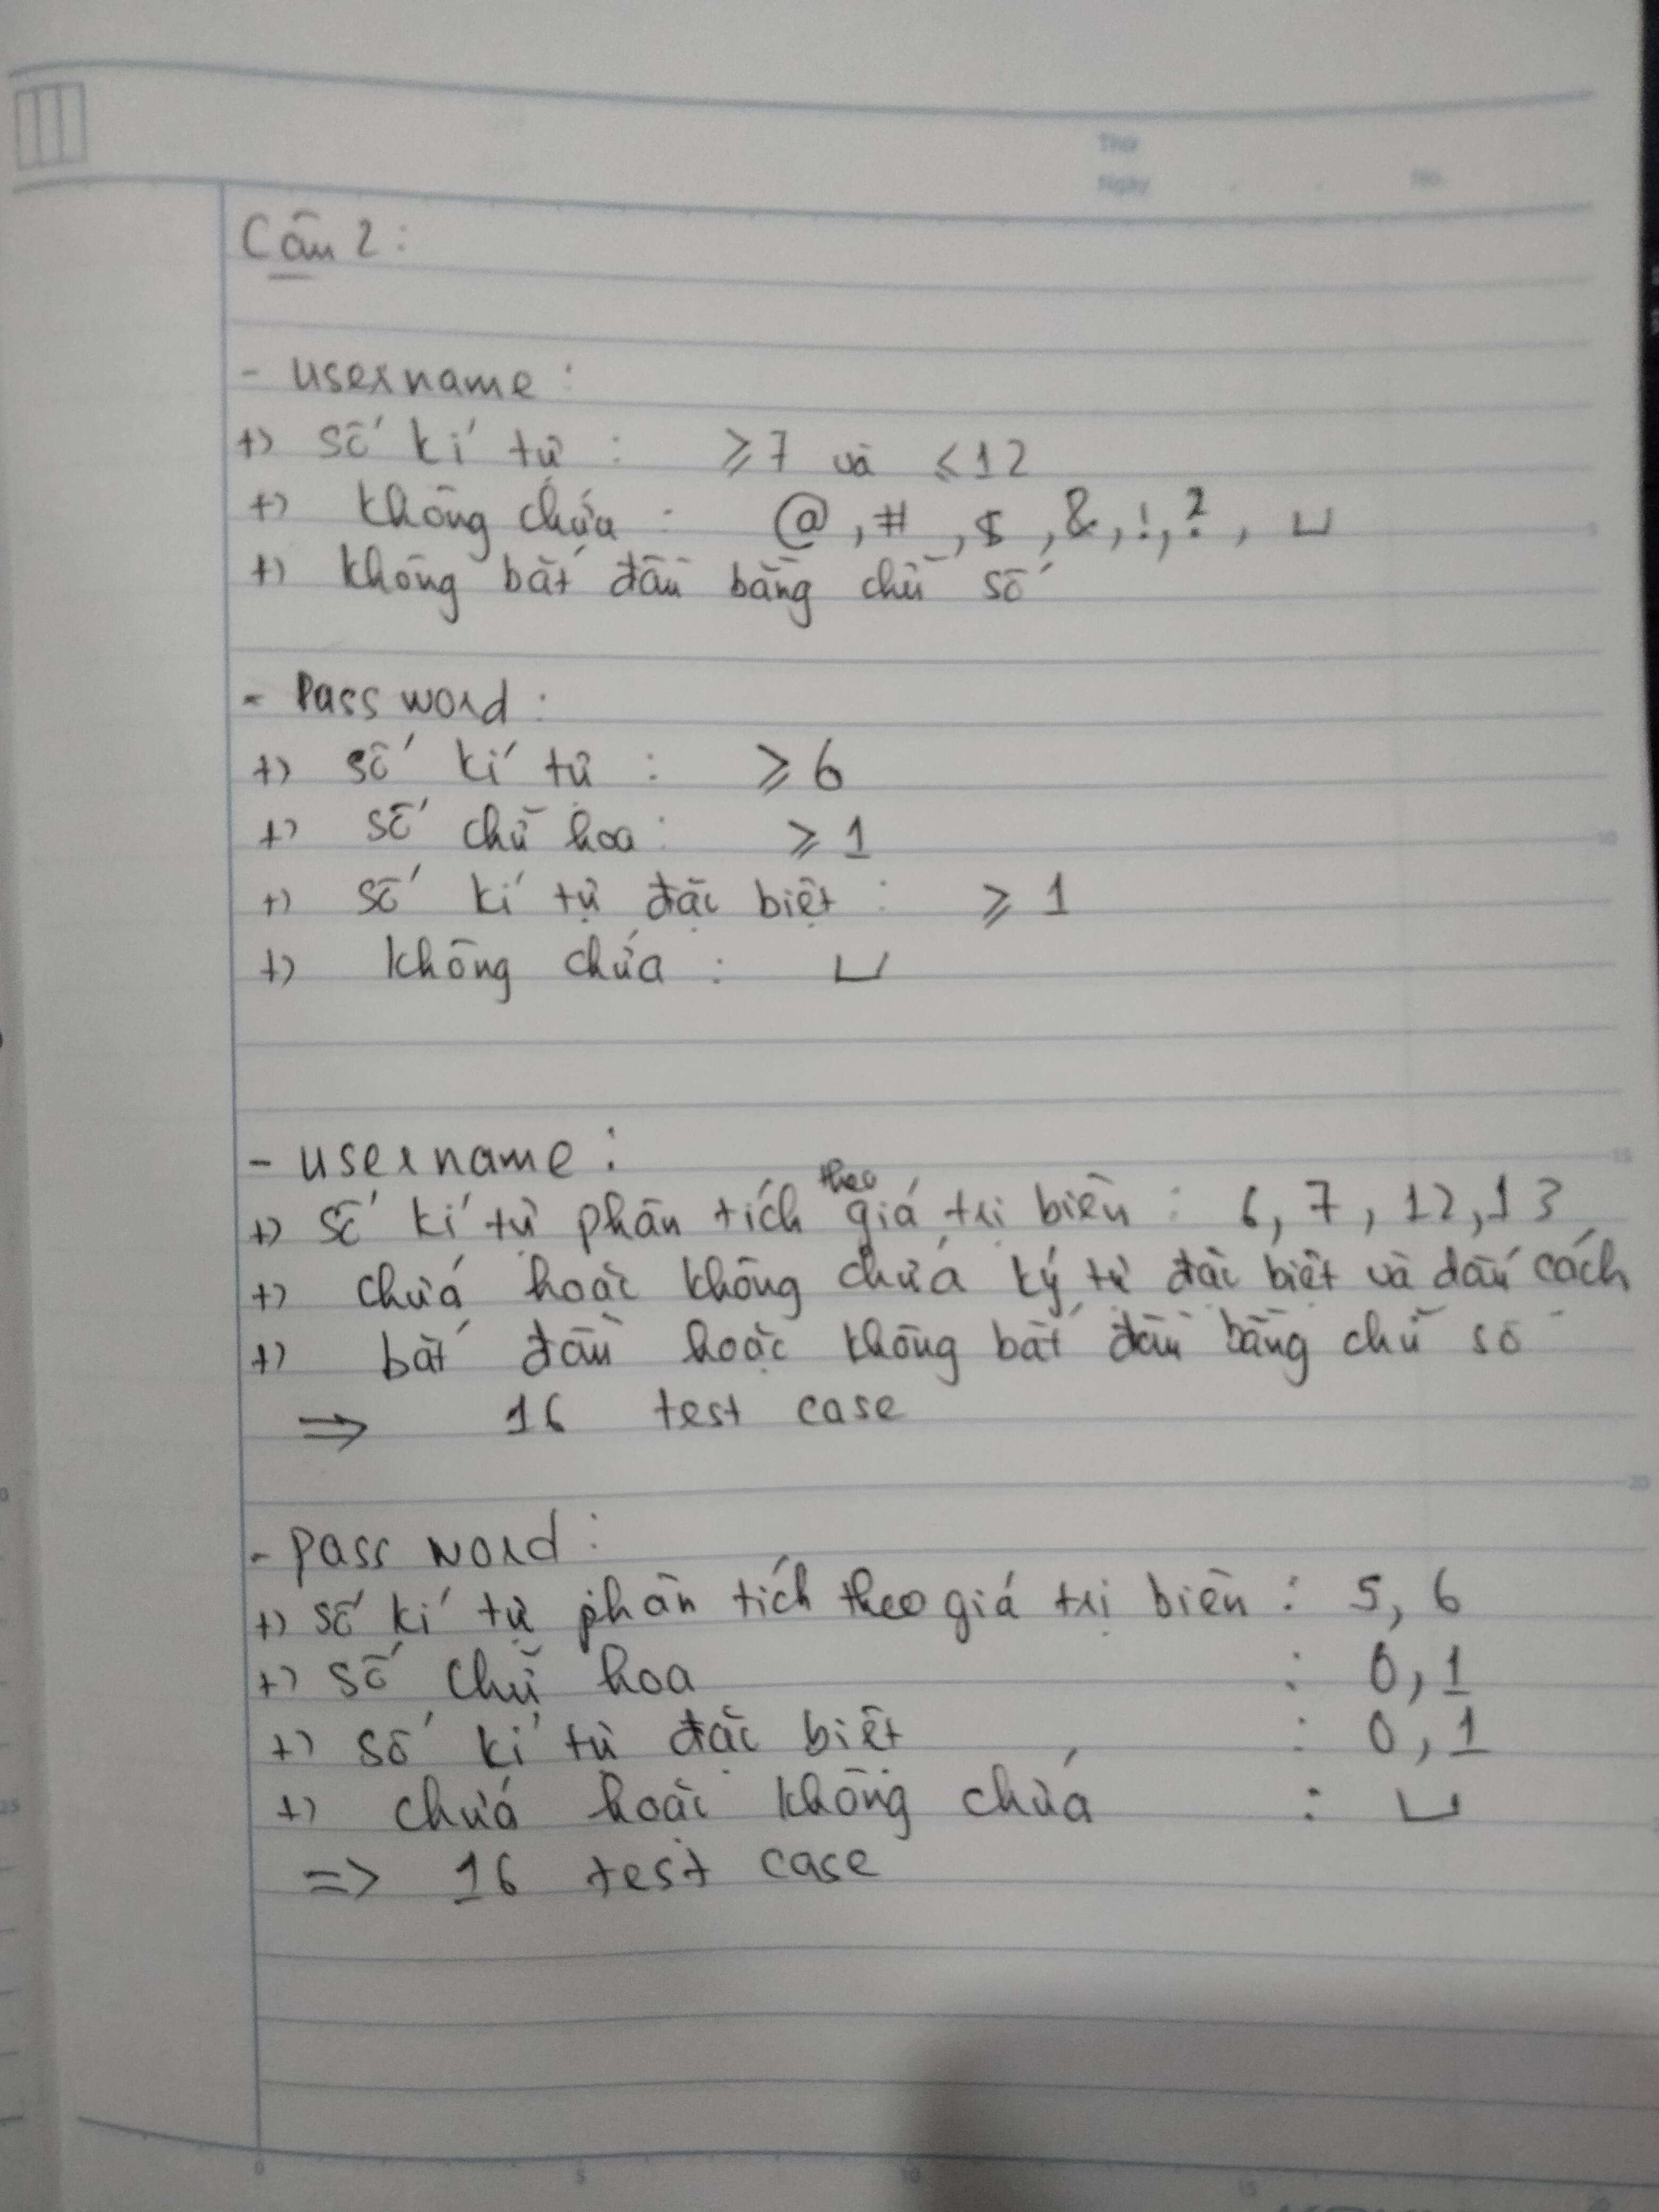 Thứ
Ngày . . No.
Câu 2:
- username:
+) số kí tự : ≥7 và ≤12
+) không chứa : @, #, $, &, !, ?, ⊔
+) không bắt đầu bằng chữ số
- Password:
+) số kí tự : ≥6
+) số chữ hoa: ≥1
+) số kí tự đặc biệt : ≥1
+) không chứa : ⊔
- username:
+) số kí tự phân tích theo giá trị biên : 6, 7, 12, 13
+) chứa hoặc không chứa ký tự đặc biệt và dấu cách
+) bắt đầu hoặc không bắt đầu bằng chữ số
=> 16 test case
- password:
+) số kí tự phân tích theo giá trị biên : 5, 6
+) số chữ hoa : 0, 1
+) số kí tự đặc biệt : 0, 1
+) chứa hoặc không chứa : ⊔
=> 16 test case
5
10
15
20
25
0 5 10 15